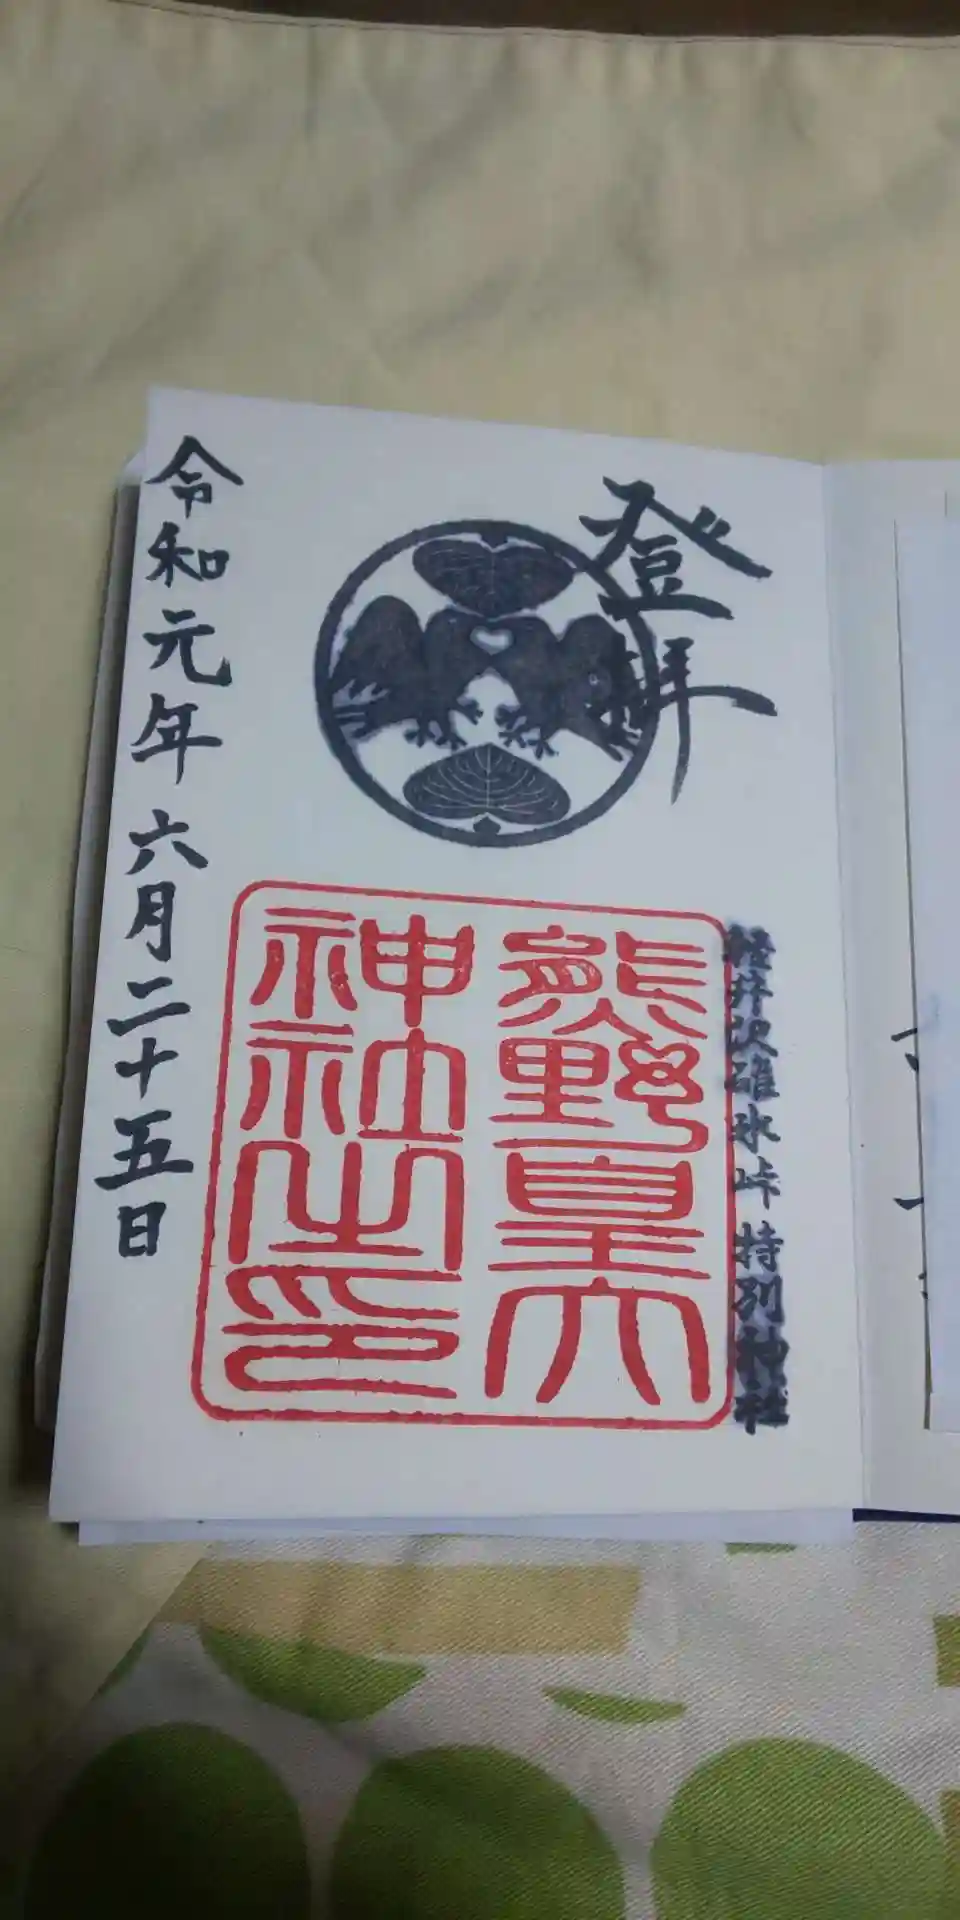 登拝
軽井沢碓氷峠 特別神社
熊野皇大
神社之印
令和元年 六月二十五日